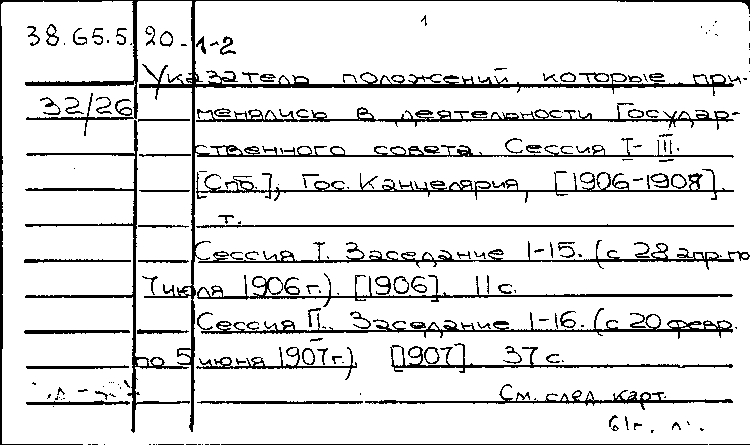 1
38.65.5 20-1-2
Указатель положений, которые при-
32/26 менялись в деятельности Государ-
ственного совета. Сессия I-III.
[Спб.], Гос. Канцелярия, [1906-1908].
т.
Сессия I. Заседание 1-15. (с 28 апр. по
7 июля 1906 г.). [1906]. 11 с.
Сессия II. Заседание 1-16. (с 20 февр.
по 5 июня 1907 г.) [1907]. 37 с.
См. след. карт.
61г.